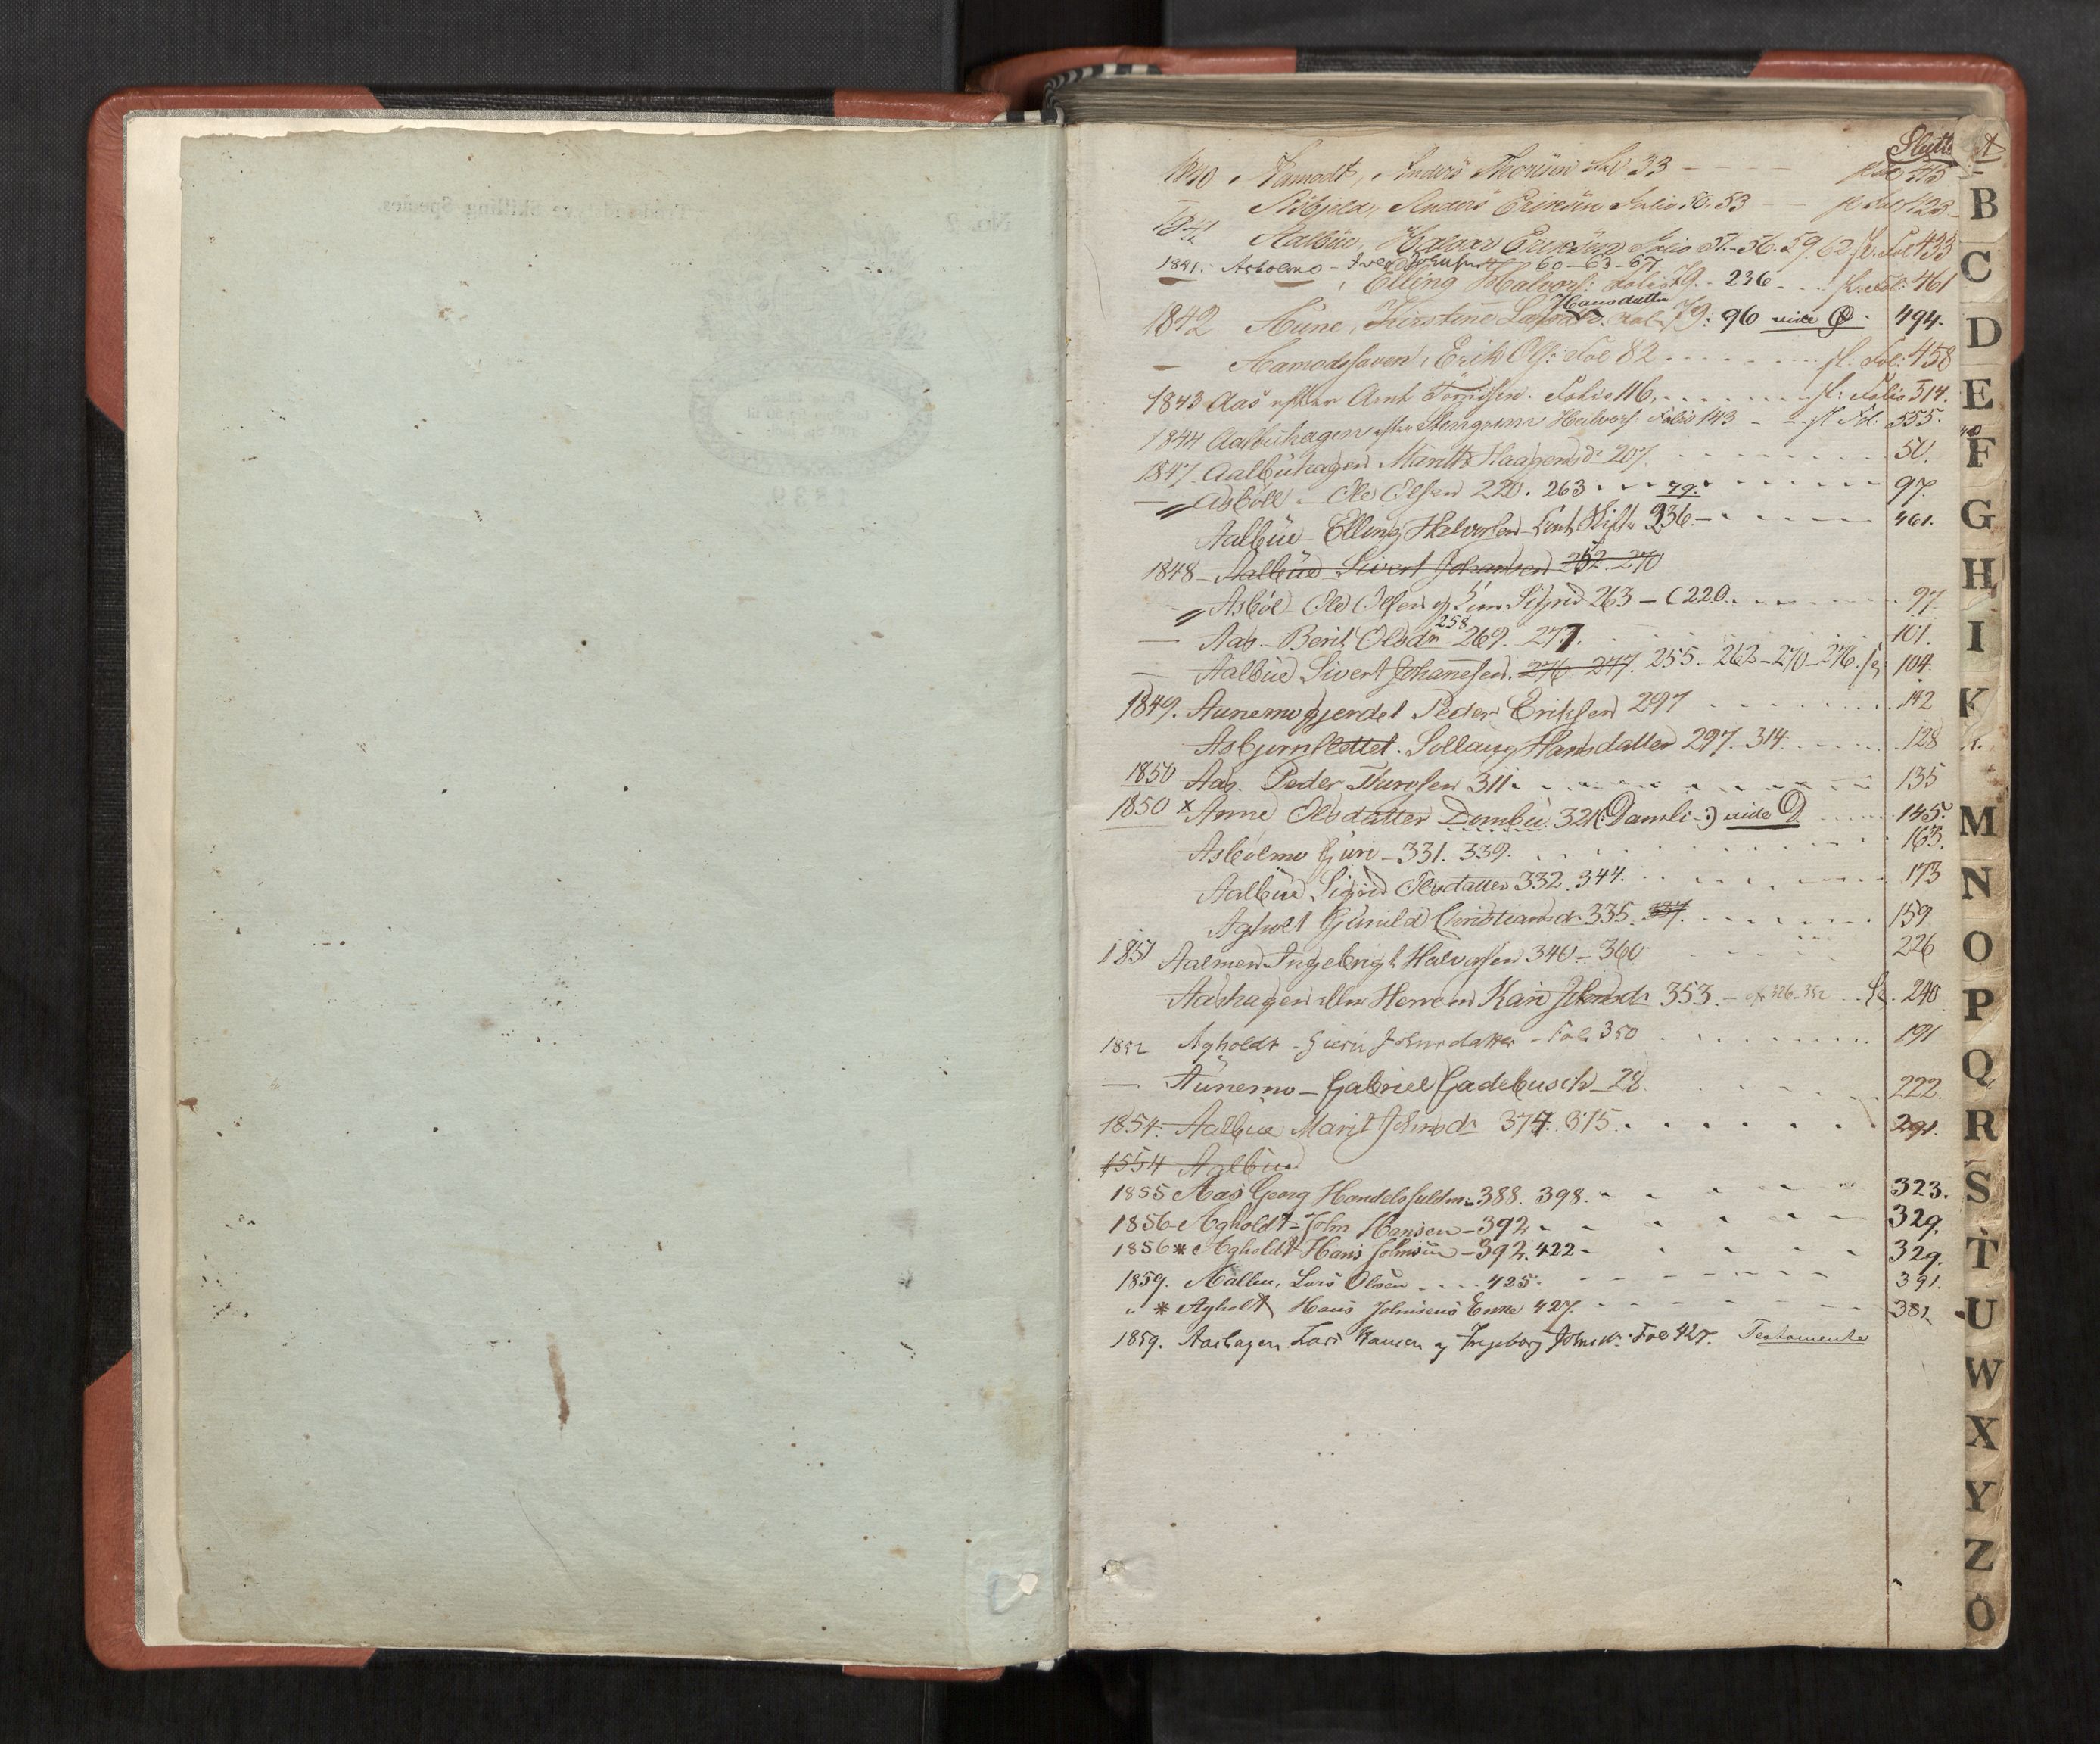 Slutt A
1840 Aamodt, Anders Thoresen Fol. 33 - - - Fol 45
Anders Eriksen Folio 50. 53 - fl Fol 423
1841 Aalbue, Halvor Eriksen Folio 51.-56.59.62 fl. Fol 433
1841. Asbolmo - Iver 60-63-67
— Elling Halvors: Folio 79. - 236 - - - fl. Fol: 461
1842 Aune, Kirstine Hansdatter Fol 79: 96 vide Ø. 494.
— Aamodshaven, Erik Ols: Fol 82 . . . . fl: Fol: 458
1843 Aas efter Arnt Folio 116. . . . . fl: Folio 514.
1844 Aalbuhagen efter Stengrim Halvors: Folio 143 - - fl Fol. 555.
1847. Aalbuhagen Marith Haagensdr 207. 50.
— Asböll - Ole Olsen 220. 263 97.
Aalbue Elling Halvorsen Cont Skifte 79. 236. - 461.
1848 - Aalbue Sivert Johansen 252. 270
Asböl - Ole Olsen og Sigrid 263 - (220. 97.
— Aas - Berit Olsdr 258 269. 277. 101.
— Aalbue Sivert Johanesen. 276 277. 255. 262-270-276. 104.
1849. Aunemogjerdet Peder Eriksen 297 142
Asbjørnslettet. Sollaug Hansdatter 297-314. 128
1850 Aas. Peder 311. 135
1850 x Anne Olsdatter Dombu. 321 (: Damli :) vide D. 145.
Asbolmo Guri - 331. 339. 163.
Aalbue Sigrid Olsdatter 332. 344. 173
Agholt Gunild Christiansdr 335. 337. 159
1851 Aalmen Ingebrigt Halvorsen 340 - 360 226
Aashagen eller Herrem Kari Johnsdr 353. - 326-352 240
1852 Agholdt - Guri Johnsdatter - Fol 350 191
— Aunemo - Gabriel Gadebusch 28. 222.
1854. Aalbue Marit Johnsdr 374. 375. 291.
1554 Aalbue
1855 Aas Georg Handelsfuldm. 388. 398. 323.
1856 Agholdt - John Hansen - 392 329.
1856 * Agholdt Hans Johnsen - 392. 422 - 329.
1859. Aalbu, Lars Olsen . . . . 425. 391.
" * Agholt Hans Johnsens Enke 427. 381.
1859. Aashagen Lars Hansen og Ingeborg Johnsdr. Fol 427. Testamente
B
C
D
E
F
G
H
I
K
M
N
O
P
Q
R
S
T
U
W
X
Y
Z
Ö